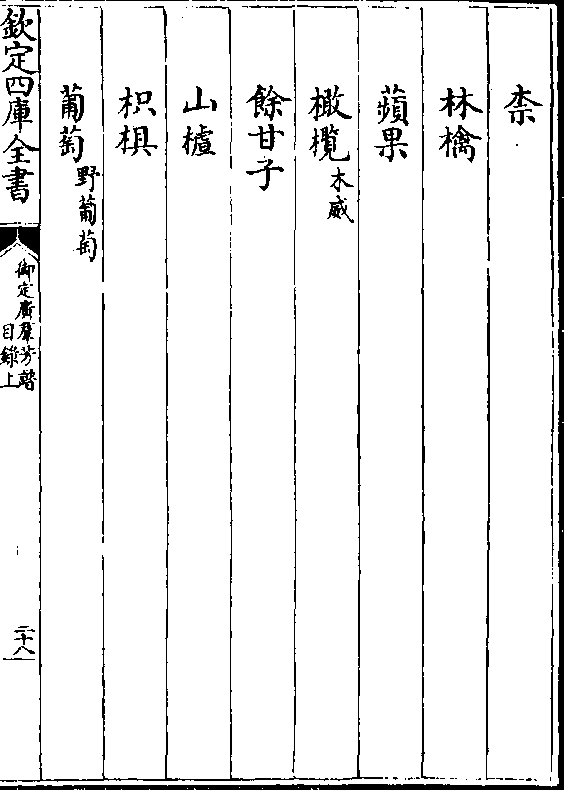 柰
林檎
蘋果
橄欖木威
餘甘子
山樝
枳椇
葡萄野葡萄
欽定四庫全書
御定廣羣芳譜
目錄上
二十八